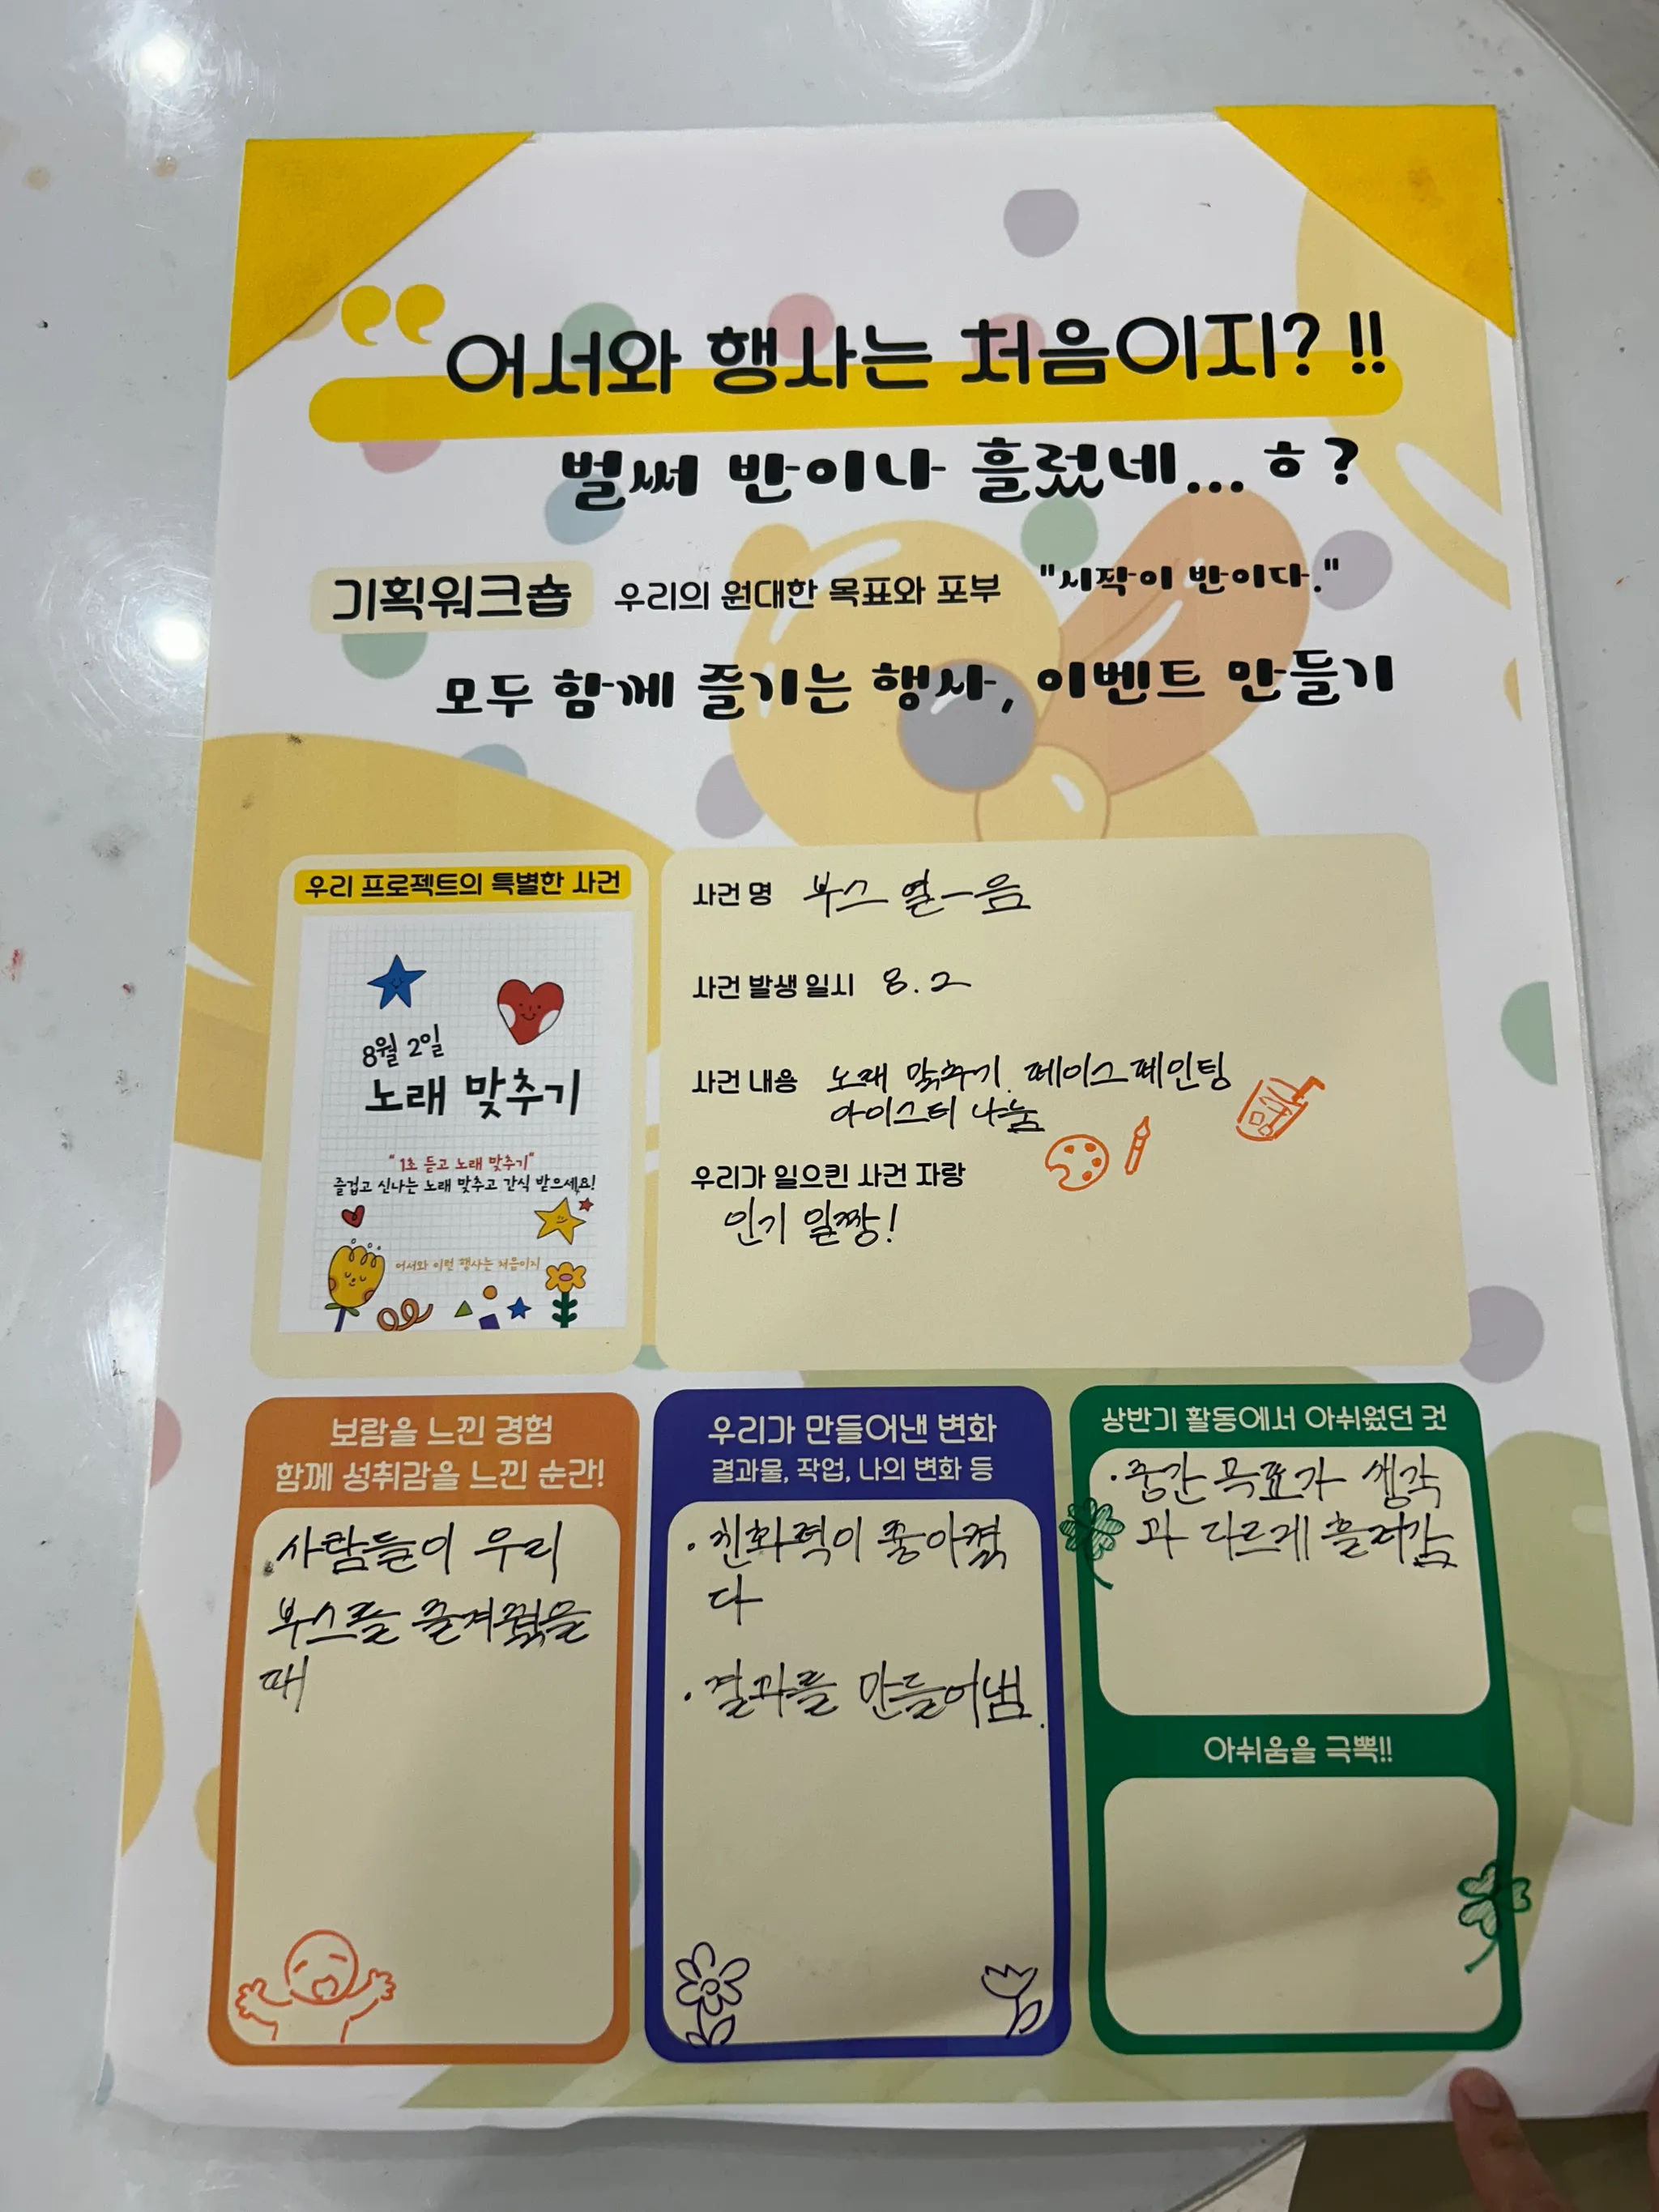 어서와 행사는 처음이지? !!
벌써 반이나 흘렀네...ㅎ?
기획워크숍 우리의 원대한 목표와 포부 "시작이 반이다."
모두 함께 즐기는 행사, 이벤트 만들기
우리 프로젝트의 특별한 사건
8월 2일
노래 맞추기
"1초 듣고 노래 맞추기"
즐겁고 신나는 노래 맞추고 간식 받으세요!
어서와 이런 행사는 처음이지
사건 명 부스 열-음
사건 발생 일시 8.2
사건 내용 노래 맞추기. 페이스페인팅
아이스티 나눔
우리가 일으킨 사건 자랑
인기 일짱!
보람을 느낀 경험
함께 성취감을 느낀 순간!
사람들이 우리
부스를 즐겨줬을
때
우리가 만들어낸 변화
결과물, 작업, 나의 변화 등
· 친화력이 좋아졌
다
· 결과를 만들어냄.
상반기 활동에서 아쉬웠던 것
· 중간 목표가 생각
과 다르게 흘러감
아쉬움을 극뽁!!